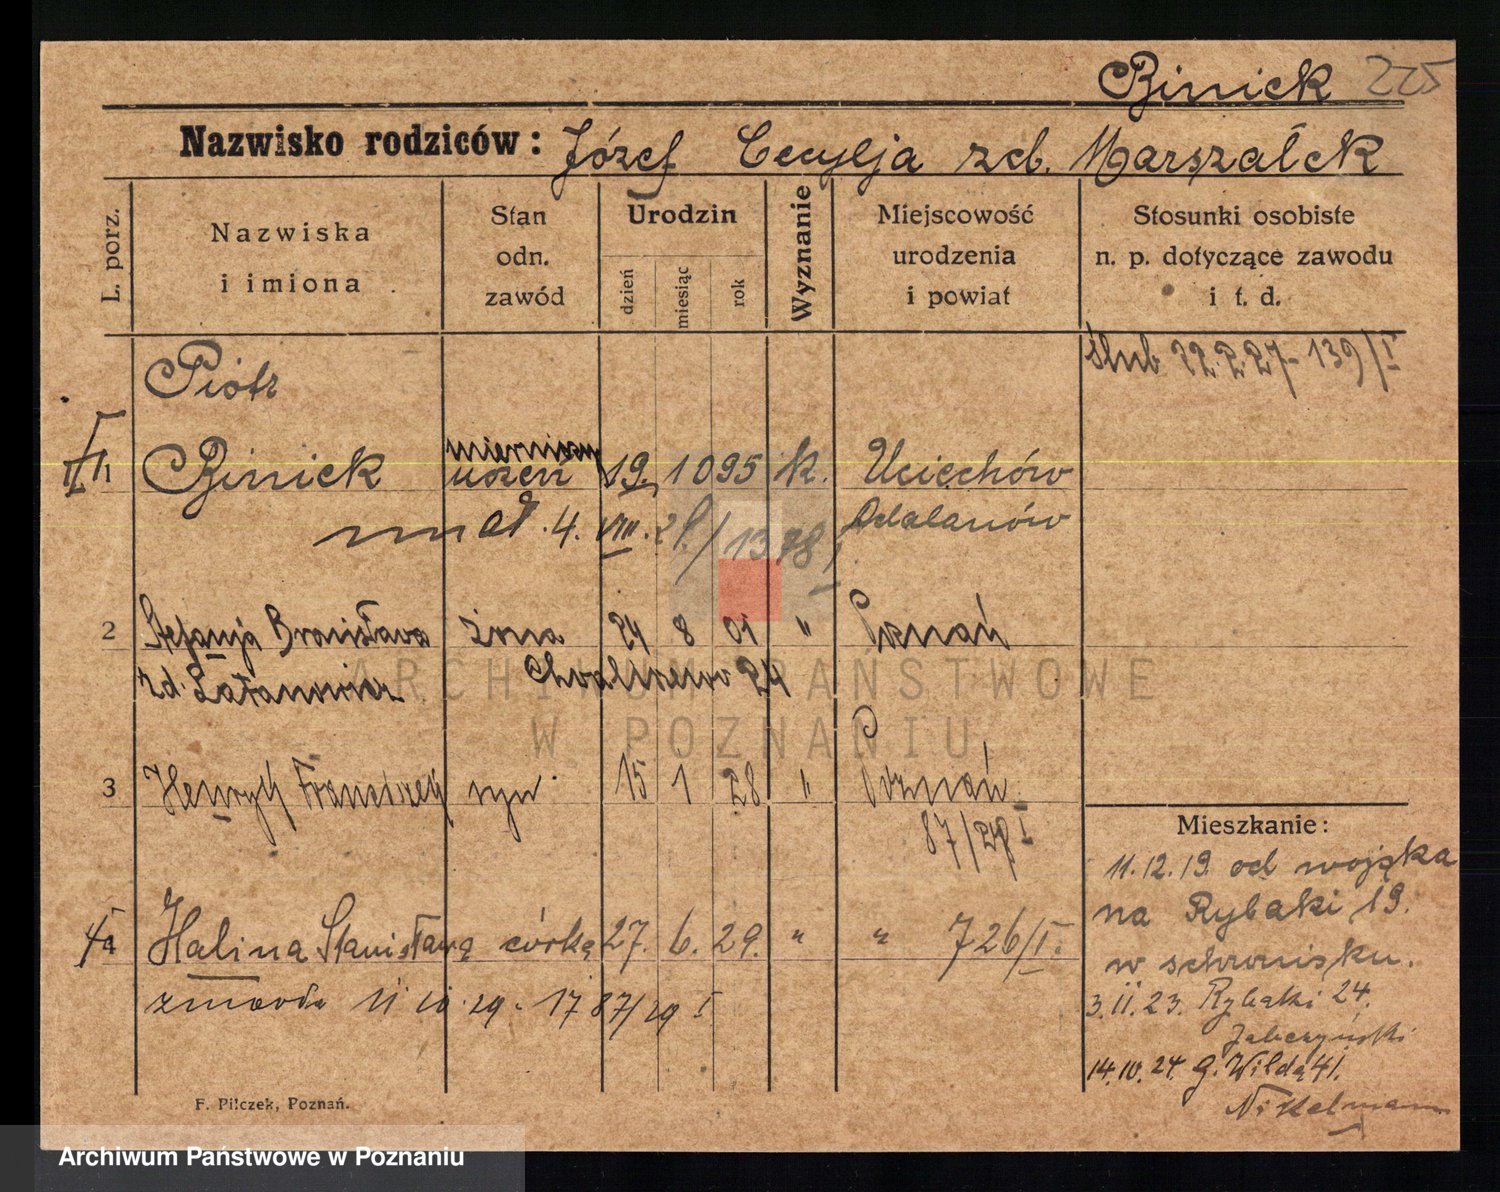 Biniek 225
Nazwisko rodziców: Józef Cecylja rzeb. Marszałek
L. porz.
Nazwiska i imiona
Stan odn. zawód
Urodzin
dzień
miesiąc
rok
Wyznanie
Miejscowość urodzenia i powiat
Stosunki osobiste n. p. dotyczące zawodu i t. d.
ślub 22.2.27 - 139/I
Piotr
1 Biniek uczeń 19. 10 95 k. Uciechów
zmarł 4. VIII. 28/1378 I Odalanów
2 Stefanja Bronisława żona 24 8 01 " Poznań
z d. Łatanowicz Chwaliszewo 24
3 Henryk Franciszek syn 15 1 28 " Poznań
87/28 I
4 Halina Stanisława córka 27. 6. 29. " " 726/I.
zmarła 11 10 29 - 1787/29 I
Mieszkanie:
11.12.19. od wojska
na Rybaki 19.
w schronisku.
3.II.23. Rybaki 24.
Jabczyński
14.10.24. G. Wilda 41.
Nikelmann
F. Pilczek, Poznań.
ARCHIWUM PAŃSTWOWE
W POZNANIU
Archiwum Państwowe w Poznaniu